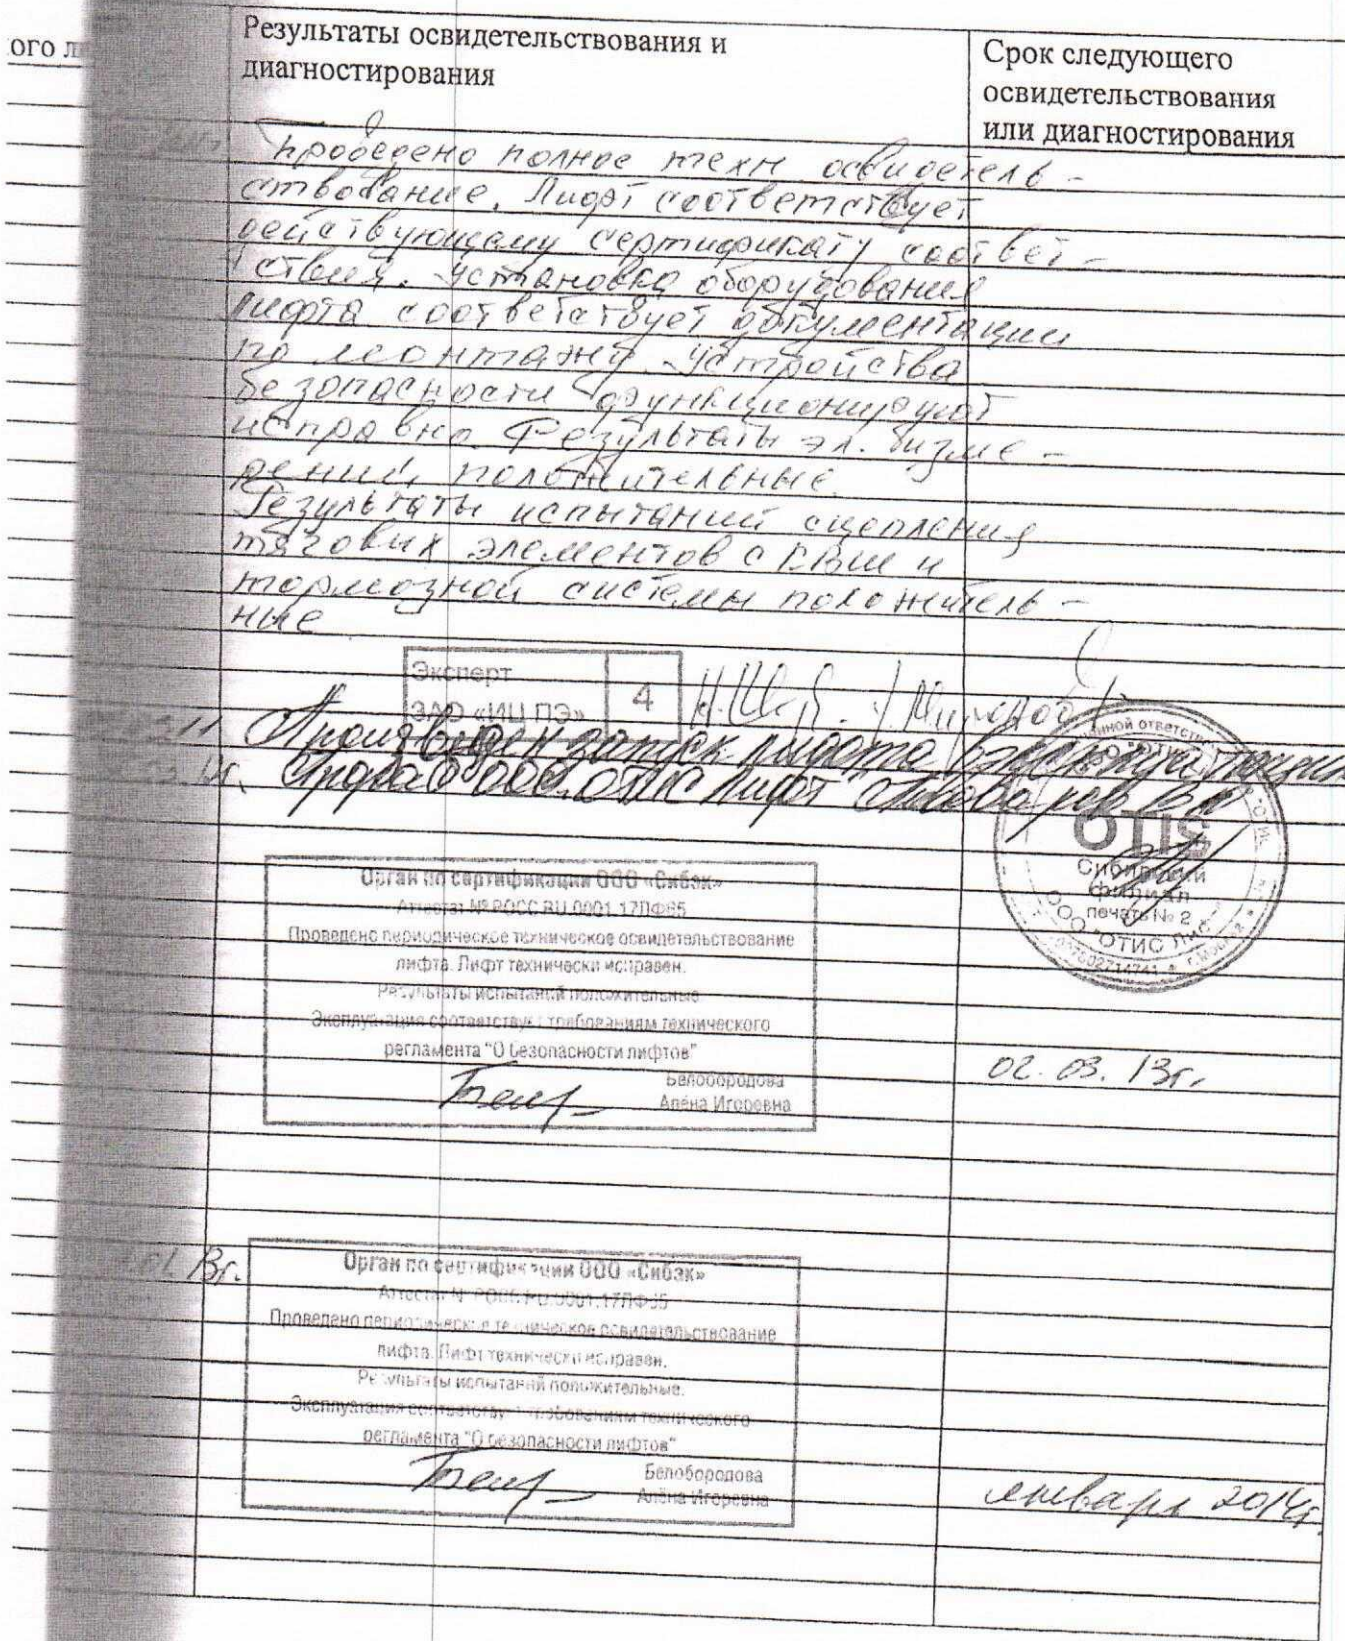 ого л
Результаты освидетельствования и
диагностирования
Срок следующего
освидетельствования
или диагностирования
Проведено полное техн освидетель-
ствование. Лифт соответствует
действующему сертификату соответ-
ствия. Установка оборудования
лифта соответствует документации
по монтажу. Устройства
безопасности функционируют
исправно. Результаты эл. изме-
рений положительные.
Результаты испытаний сцепления
тяговых элементов с КВШ и
тормозной системы положитель-
ные
Эксперт
ЗАО «ИЦ ПЭ»
4
Произведен запуск лифта в эксплуатацию
Прораб ООО. ОТИС Лифт
OTIS
Сибирский
филиал
печать № 2
ООО "ОТИС Лифт"
Орган по сертификации ООО «Сибэк»
Аттестат № РОСС RU.0001.17ЛФ65
Проведено периодическое техническое освидетельствование
лифта. Лифт технически исправен.
Результаты испытаний положительные
Эксплуатация соответствует требованиям технического
регламента "О безопасности лифтов"
Белобородова
Алёна Игоревна
02. 03. 13г.
01. 13г.
Орган по сертификации ООО «Сибэк»
Аттестат № РОСС RU.0001.17ЛФ65
Проведено периодическое техническое освидетельствование
лифта. Лифт технически исправен.
Результаты испытаний положительные.
Эксплуатация соответствует требованиям технического
регламента "О безопасности лифтов"
Белобородова
Алёна Игоревна
январь 2014г.